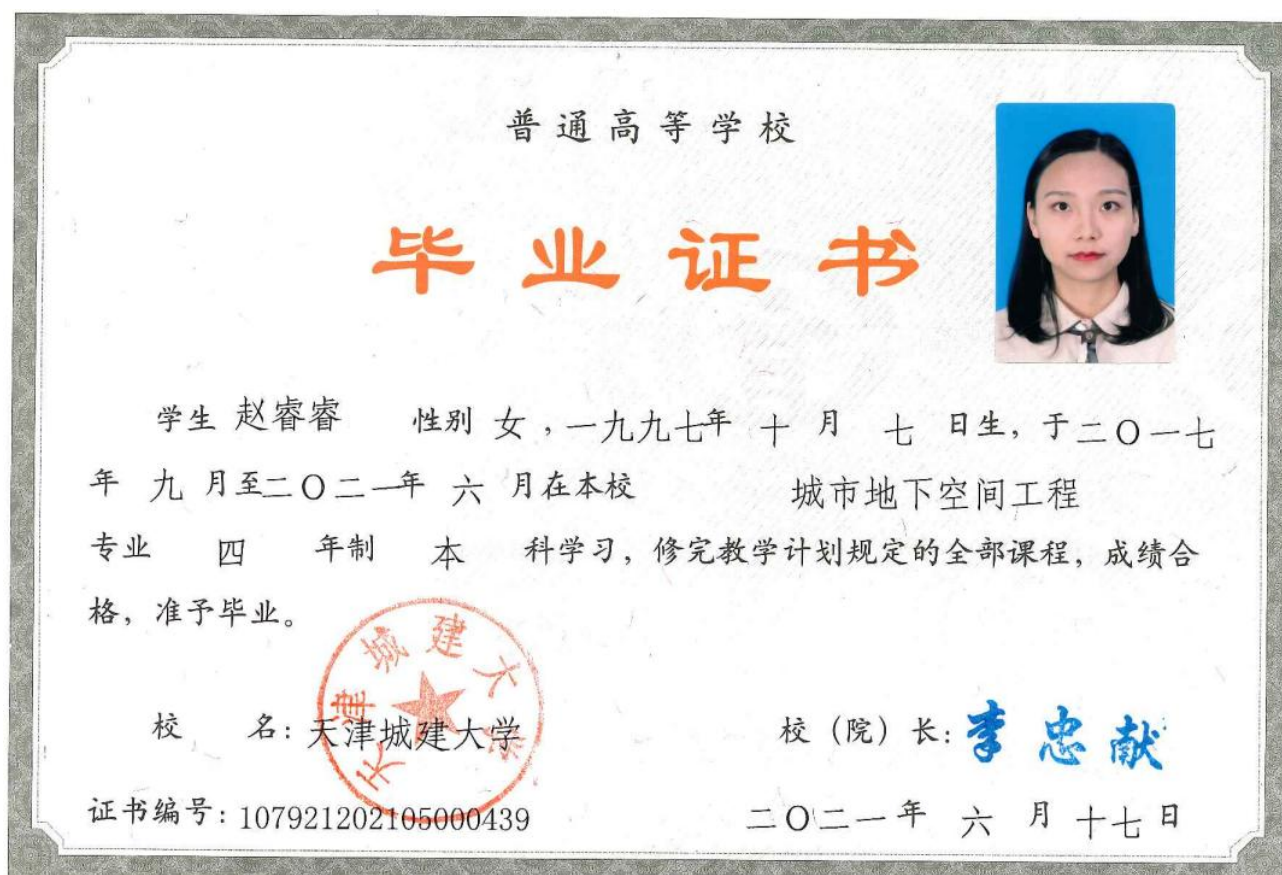 普通高等学校
毕业证书
学生 赵睿睿 性别 女，一九九七年 十 月 七 日生，于二〇一七
年 九 月至二〇二一年 六 月在本校 城市地下空间工程
专业 四 年制 本 科学习，修完教学计划规定的全部课程，成绩合
格，准予毕业。
天津城建大学
校 名：天津城建大学 校（院）长：李忠献
证书编号：107921202105000439 二〇二一年 六 月 十七 日